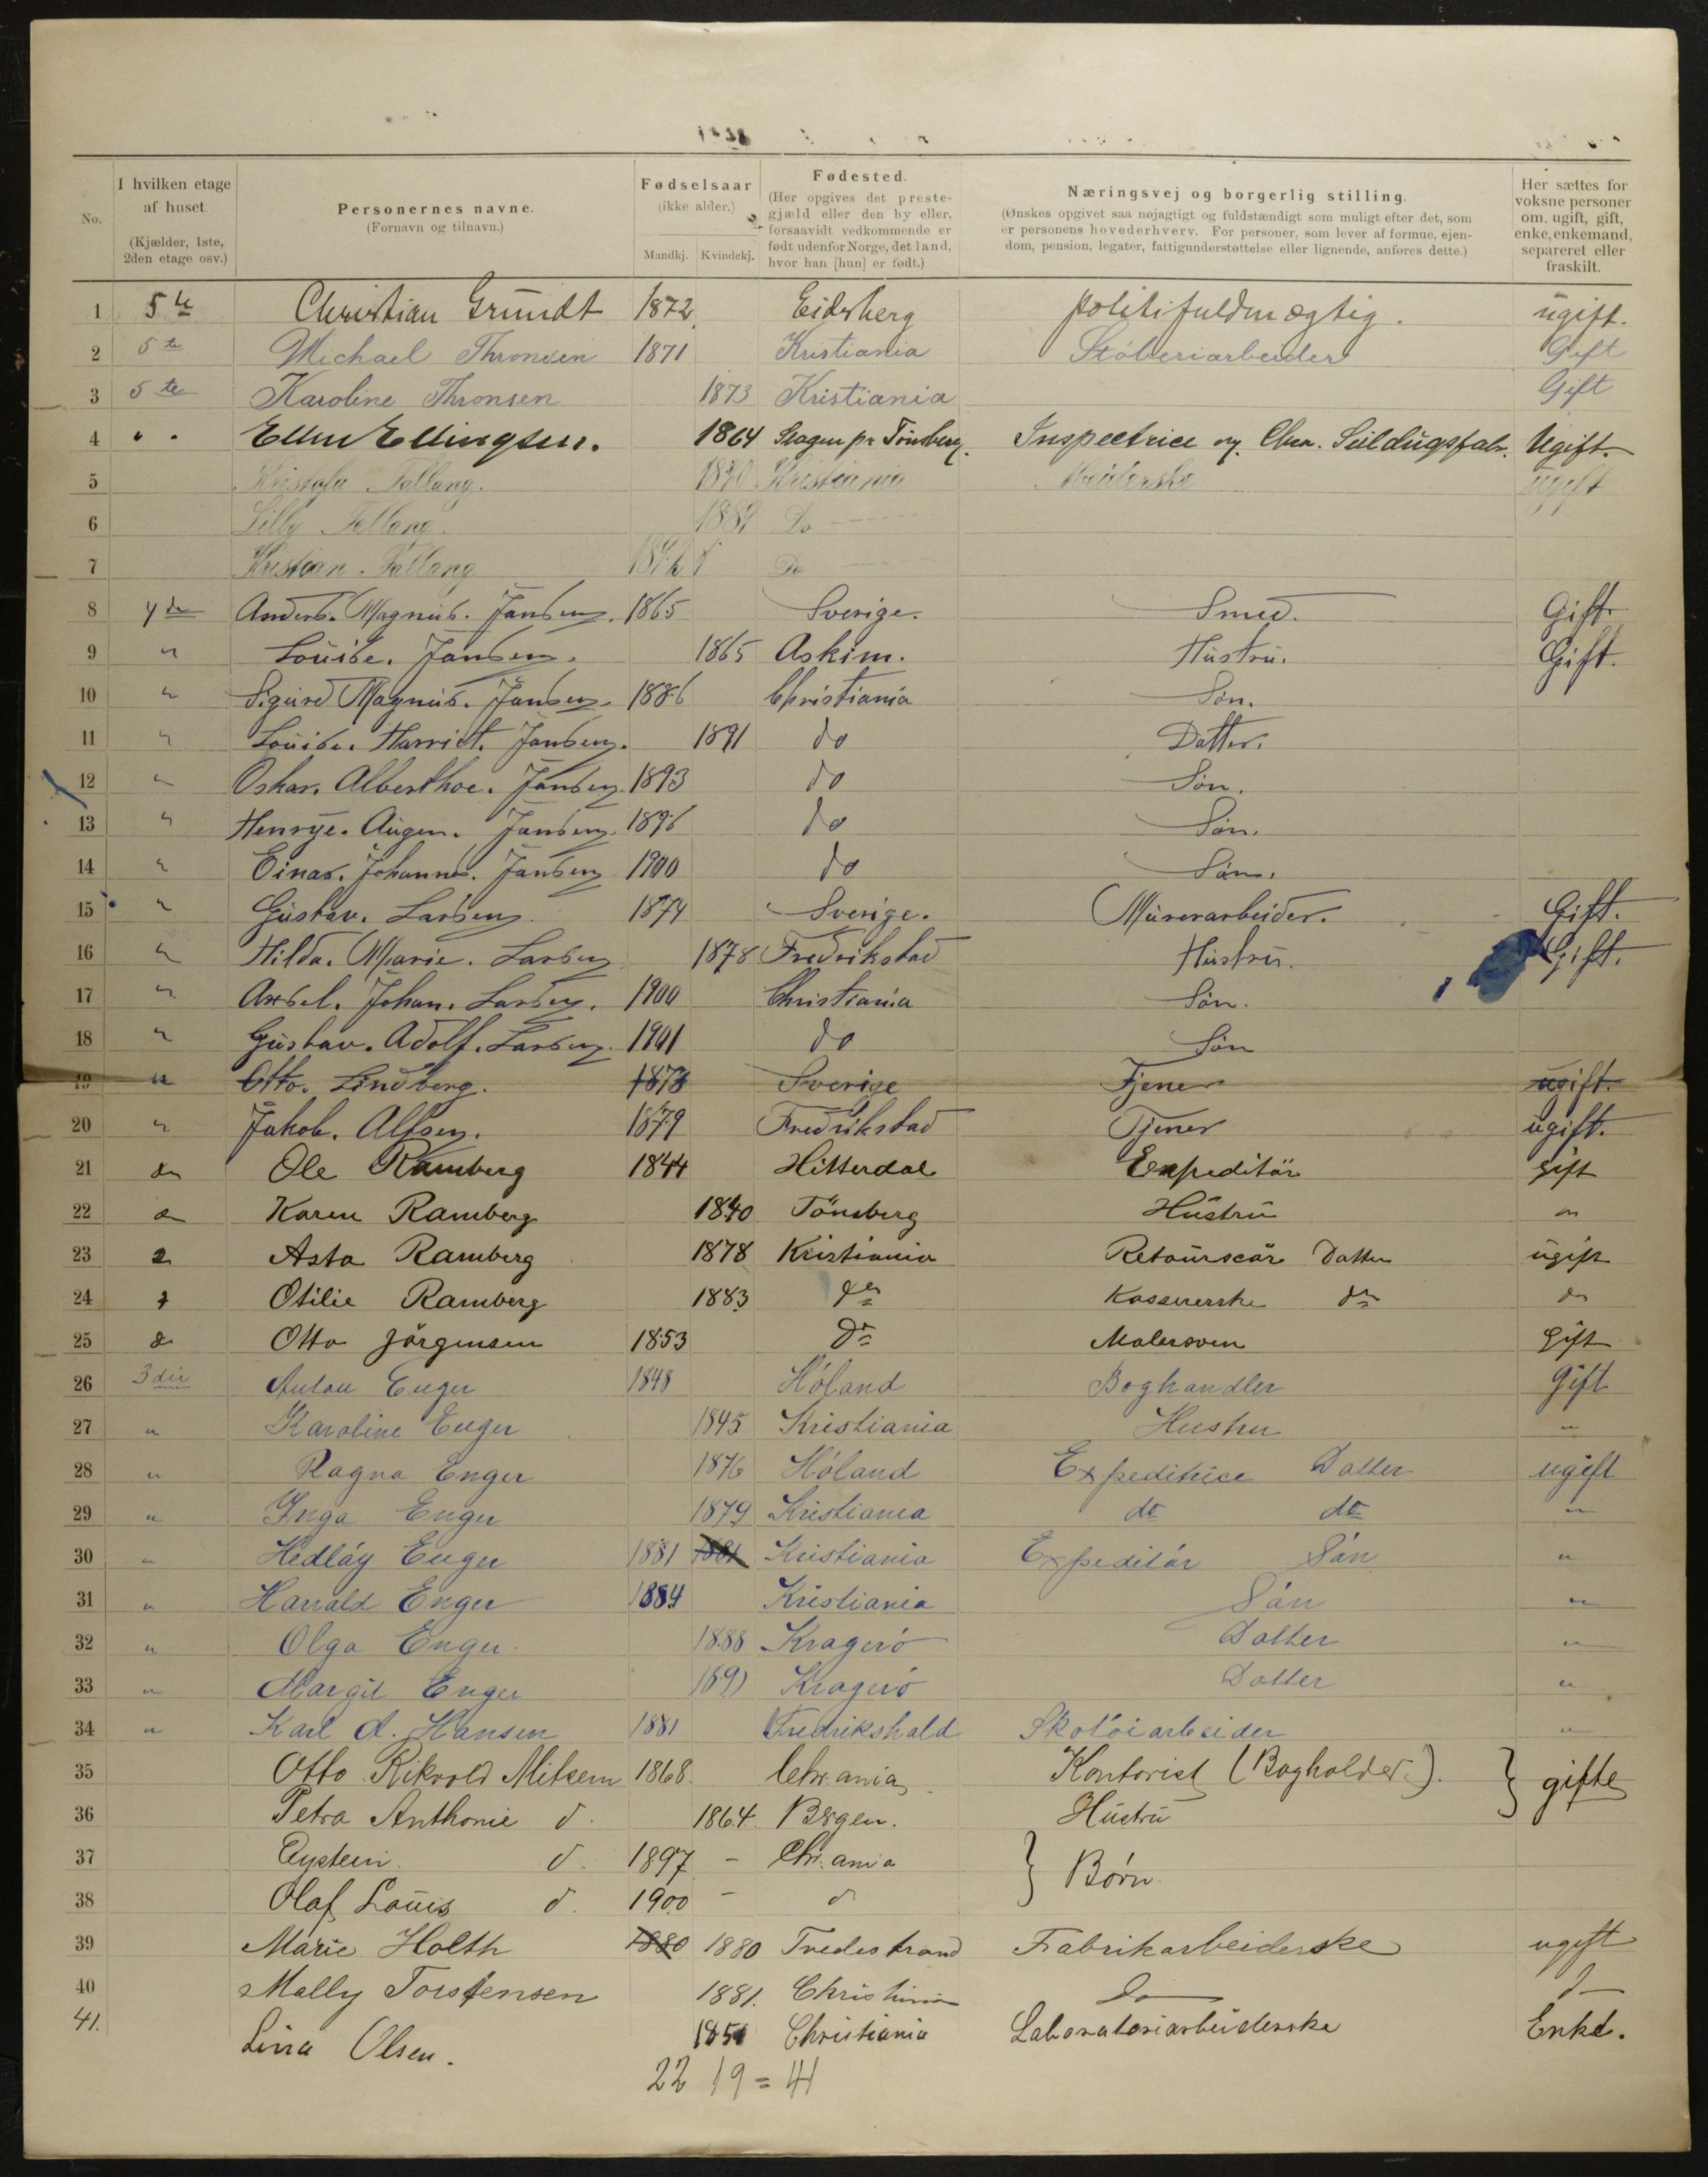 No.
I hvilken etage af huset. (Kjælder, 1ste, 2den etage osv.)
Personernes navne. (Fornavn og tilnavn.)
Fødselsaar (ikke alder.) Mandkj. Kvindekj.
Fødested. (Her opgives det prestegjæld eller den by eller, forsaavidt vedkommende er født udenfor Norge, det land, hvor han [hun] er født.)
Næringsvej og borgerlig stilling. (Ønskes opgivet saa nøjagtigt og fuldstændigt som muligt efter det, som er personens hovederhverv. For personer, som lever af formue, ejendom, pension, legater, fattigunderstøttelse eller lignende, anføres dette.)
Her sættes for voksne personer om. ugift, gift, enke, enkemand, separeret eller fraskilt.
1 5te Christian Grundt 1872 Eidsberg politifuldmægtig. ugift.
2 5te Michael Thronsen 1871 Kristiania Støberiarbeider Gift
3 5te Karoline Thronsen 1873 Kristiania Gift
4 " " Ellen Ellingsen. 1864 pr Tønsberg. Inspectrice Chra. Seildugsfabr. Ugift.
5 Fallang. Kristiania Arbeiderske ugift
6 Lilly Fallang. Do
7 Kristian Fallang Do
8 4de Anders. Magnus. Jansen. 1865 Sverige. Smed. Gift.
9 " Louise. Jansen. 1865 Askim. Hustru. Gift.
10 " Sigurd Magnus. Jansen. 1886 Christiania Søn.
11 " Louise. Harriet. Jansen. 1891 do Datter.
12 " Oskar. Alberthoe. Jansen. 1893 do Søn.
13 " Henrye. Augen. Jansen. 1896 do Søn.
14 " Einar. Johannes. Jansen 1900 do Søn.
15 " Gustav. Larsen 1874 Sverige. Murerarbeider. Gift.
16 " Hilda. Marie. Larsen 1878 Fredrikstad Hustru. Gift.
17 " Axsel. Johan. Larsen. 1900 Christiania Søn.
18 " Gustav. Adolf. Larsen. 1901 do Søn
19 " Otto. Lindberg. 1873 Sverige Tjener ugift.
20 " Jakob. Alfsen. 1879 Fredrikstad Tjener ugift.
21 do Ole Ramberg 1844 Hitterdal Expeditör gift
22 do Karen Ramberg 1840 Tönsberg Hustru do
23 Asta Ramberg 1878 Kristiania Datter ugift
24 Otilie Ramberg 1883 do Kassererske do do
25 do Otto Jörgensen 1853 do Malersven gift
26 3die Anton Enger 1848 Høland Boghandler Gift
27 " Karoline Enger 1845 Kristiania Hustru "
28 " Ragna Enger 1876 Høland Expeditrice Datter ugift
29 " Inga Enger 1879 Kristiania do do "
30 " Enger 1881 1881 Kristiania Expeditør Søn "
31 " Harald Enger 1884 Kristiania Søn "
32 " Olga Enger. 1888 Kragerø Datter "
33 " Margit Enger Kragerø Datter "
34 " Karl A. Hansen 1881 Fredrikshald Skotøiarbeider "
35 Otto Rikvold Mitsem 1868. Chr.ania Kontorist (Bogholder). } gifte
36 Petra Anthonie d. 1864. Bergen. Hustru
37 Eystein d. 1897 - Chr.ania } Børn
38 Olaf Louis d. 1900 - d
39 Marie Holth 1880 1880 Tvedestrand Fabrikarbeiderske ugift
40 Mally Torstensen 1881. Christiania Do do
41. Lina Olsen. 1851 Christiania Laboratoriarbeiderske Enke.
22 19 = 41